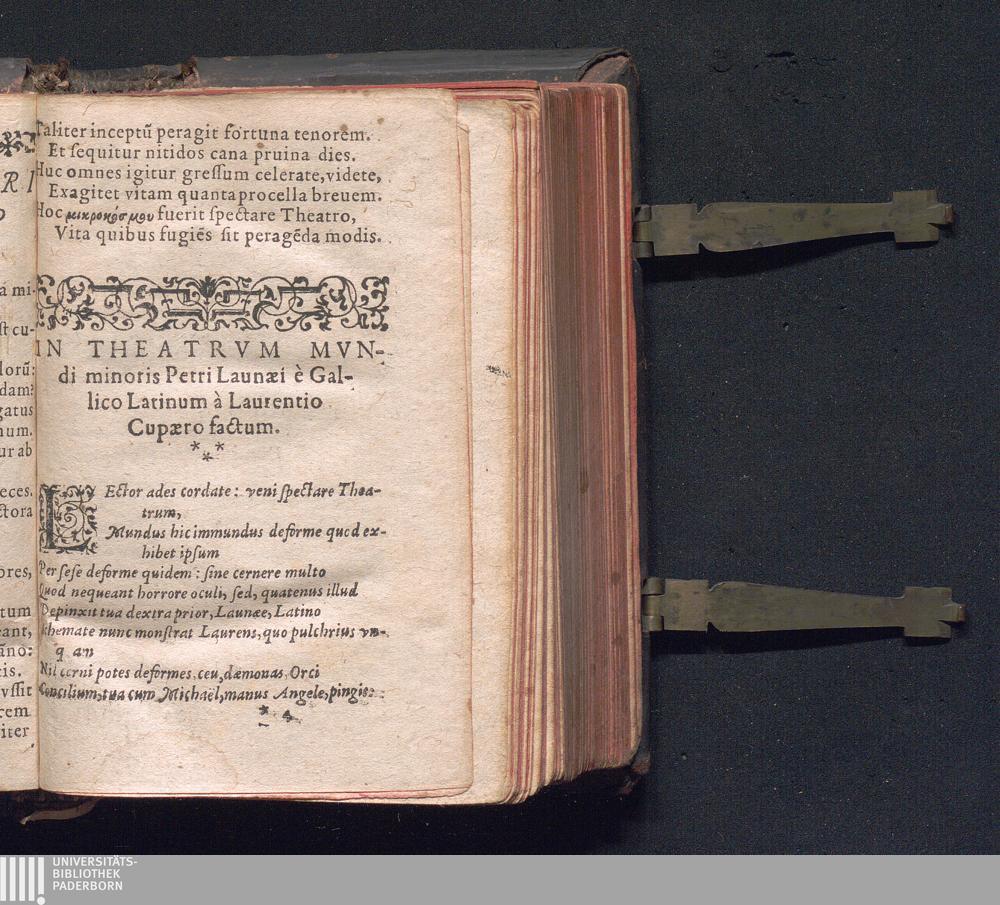 RI
a mi-
st cu-
lorū:
dam?
gatus
num.
ur ab
eces.
ctora
ores,
tum
eant,
āno:
cis.
vſſit
rem
iter
Taliter inceptū peragit fortuna tenorem.
Et ſequitur nitidos cana pruina dies.
Huc omnes igitur greſſum celerate, videte,
Exagitet vitam quanta procella breuem.
Hoc μικροκόσμου fuerit ſpectare Theatro,
Vita quibus fugiēs ſit peragēda modis.
IN THEATRVM MVN-
di minoris Petri Launæi è Gal-
lico Latinum à Laurentio
Cupæro factum.
***
LEctor ades cordate: veni ſpectare Thea-
trum,
Mundus hic immundus deforme quod ex-
hibet ipſum
Per ſeſe deforme quidem: ſine cernere multo
Quod nequeant horrore oculi, ſed, quatenus illud
Depinxit tua dextra prior, Launæe, Latino
Schemate nunc monſtrat Laurens, quo pulchrius vn-
q am
Nil cerni potes deformes ceu, dæmonas Orci
Concilium, tua cum Michaël, manus Angele, pingis:
UNIVERSITÄTS-
BIBLIOTHEK
PADERBORN